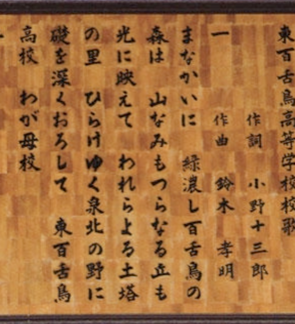 東百舌鳥高等学校校歌
作詞 小野十三郎
作曲 鈴木孝明
一
まなかいに 緑濃し百舌鳥の
森は 山なみもつらなる丘も
光に映えて われらよる土塔
の里 ひらけゆく泉北の野に
礎を深くおろして 東百舌鳥
高校 わが母校